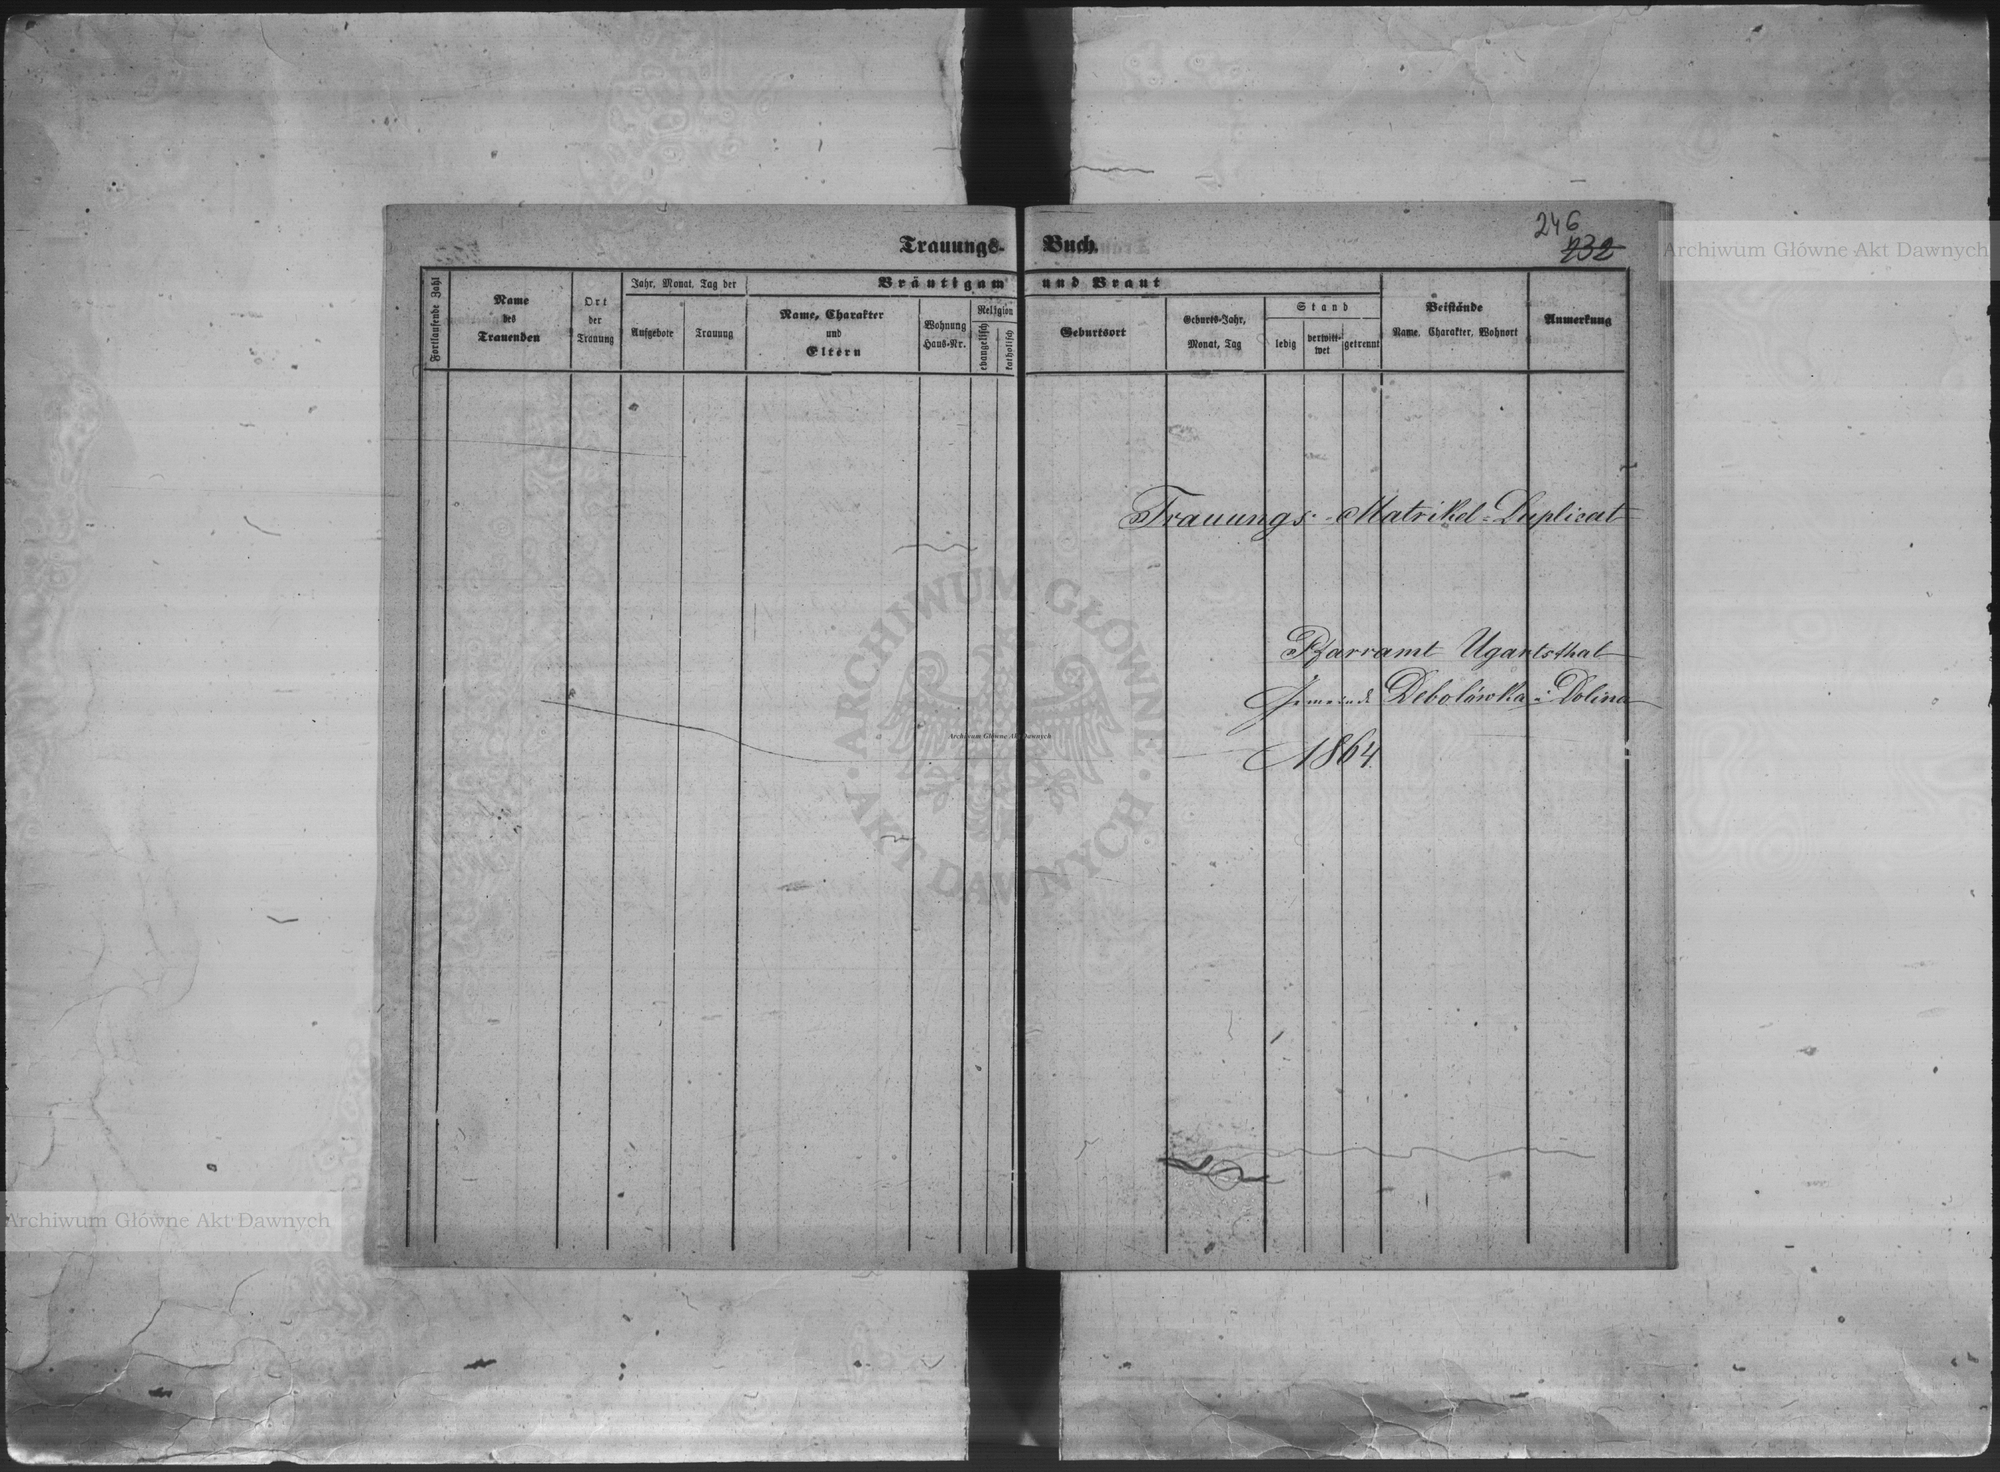 246
232
Archiwum Główne Akt Dawnych
Trauungs-Buch.
Fortlaufende Zahl
Name
des
Trauenden
Ort
der
Trauung
Jahr, Monat, Tag der
Aufgebote
Trauung
Bräutigam und Braut
Name, Charakter
und
Eltern
Wohnung
Haus-Nr.
Religion
evangelisch
katholisch
Geburtsort
Geburts-Jahr,
Monat, Tag
Stand
ledig
verwitt-
wet
getrennt
Beistände
Name, Charakter, Wohnort
Anmerkung
Trauungs-Matrikel-Duplicat
Pfarramt Ugartsthal
Gemeinde Debolówka i Dolina
1864
ARCHIWUM GŁÓWNE
AKT DAWNYCH
Archiwum Główne Akt Dawnych
Archiwum Główne Akt Dawnych